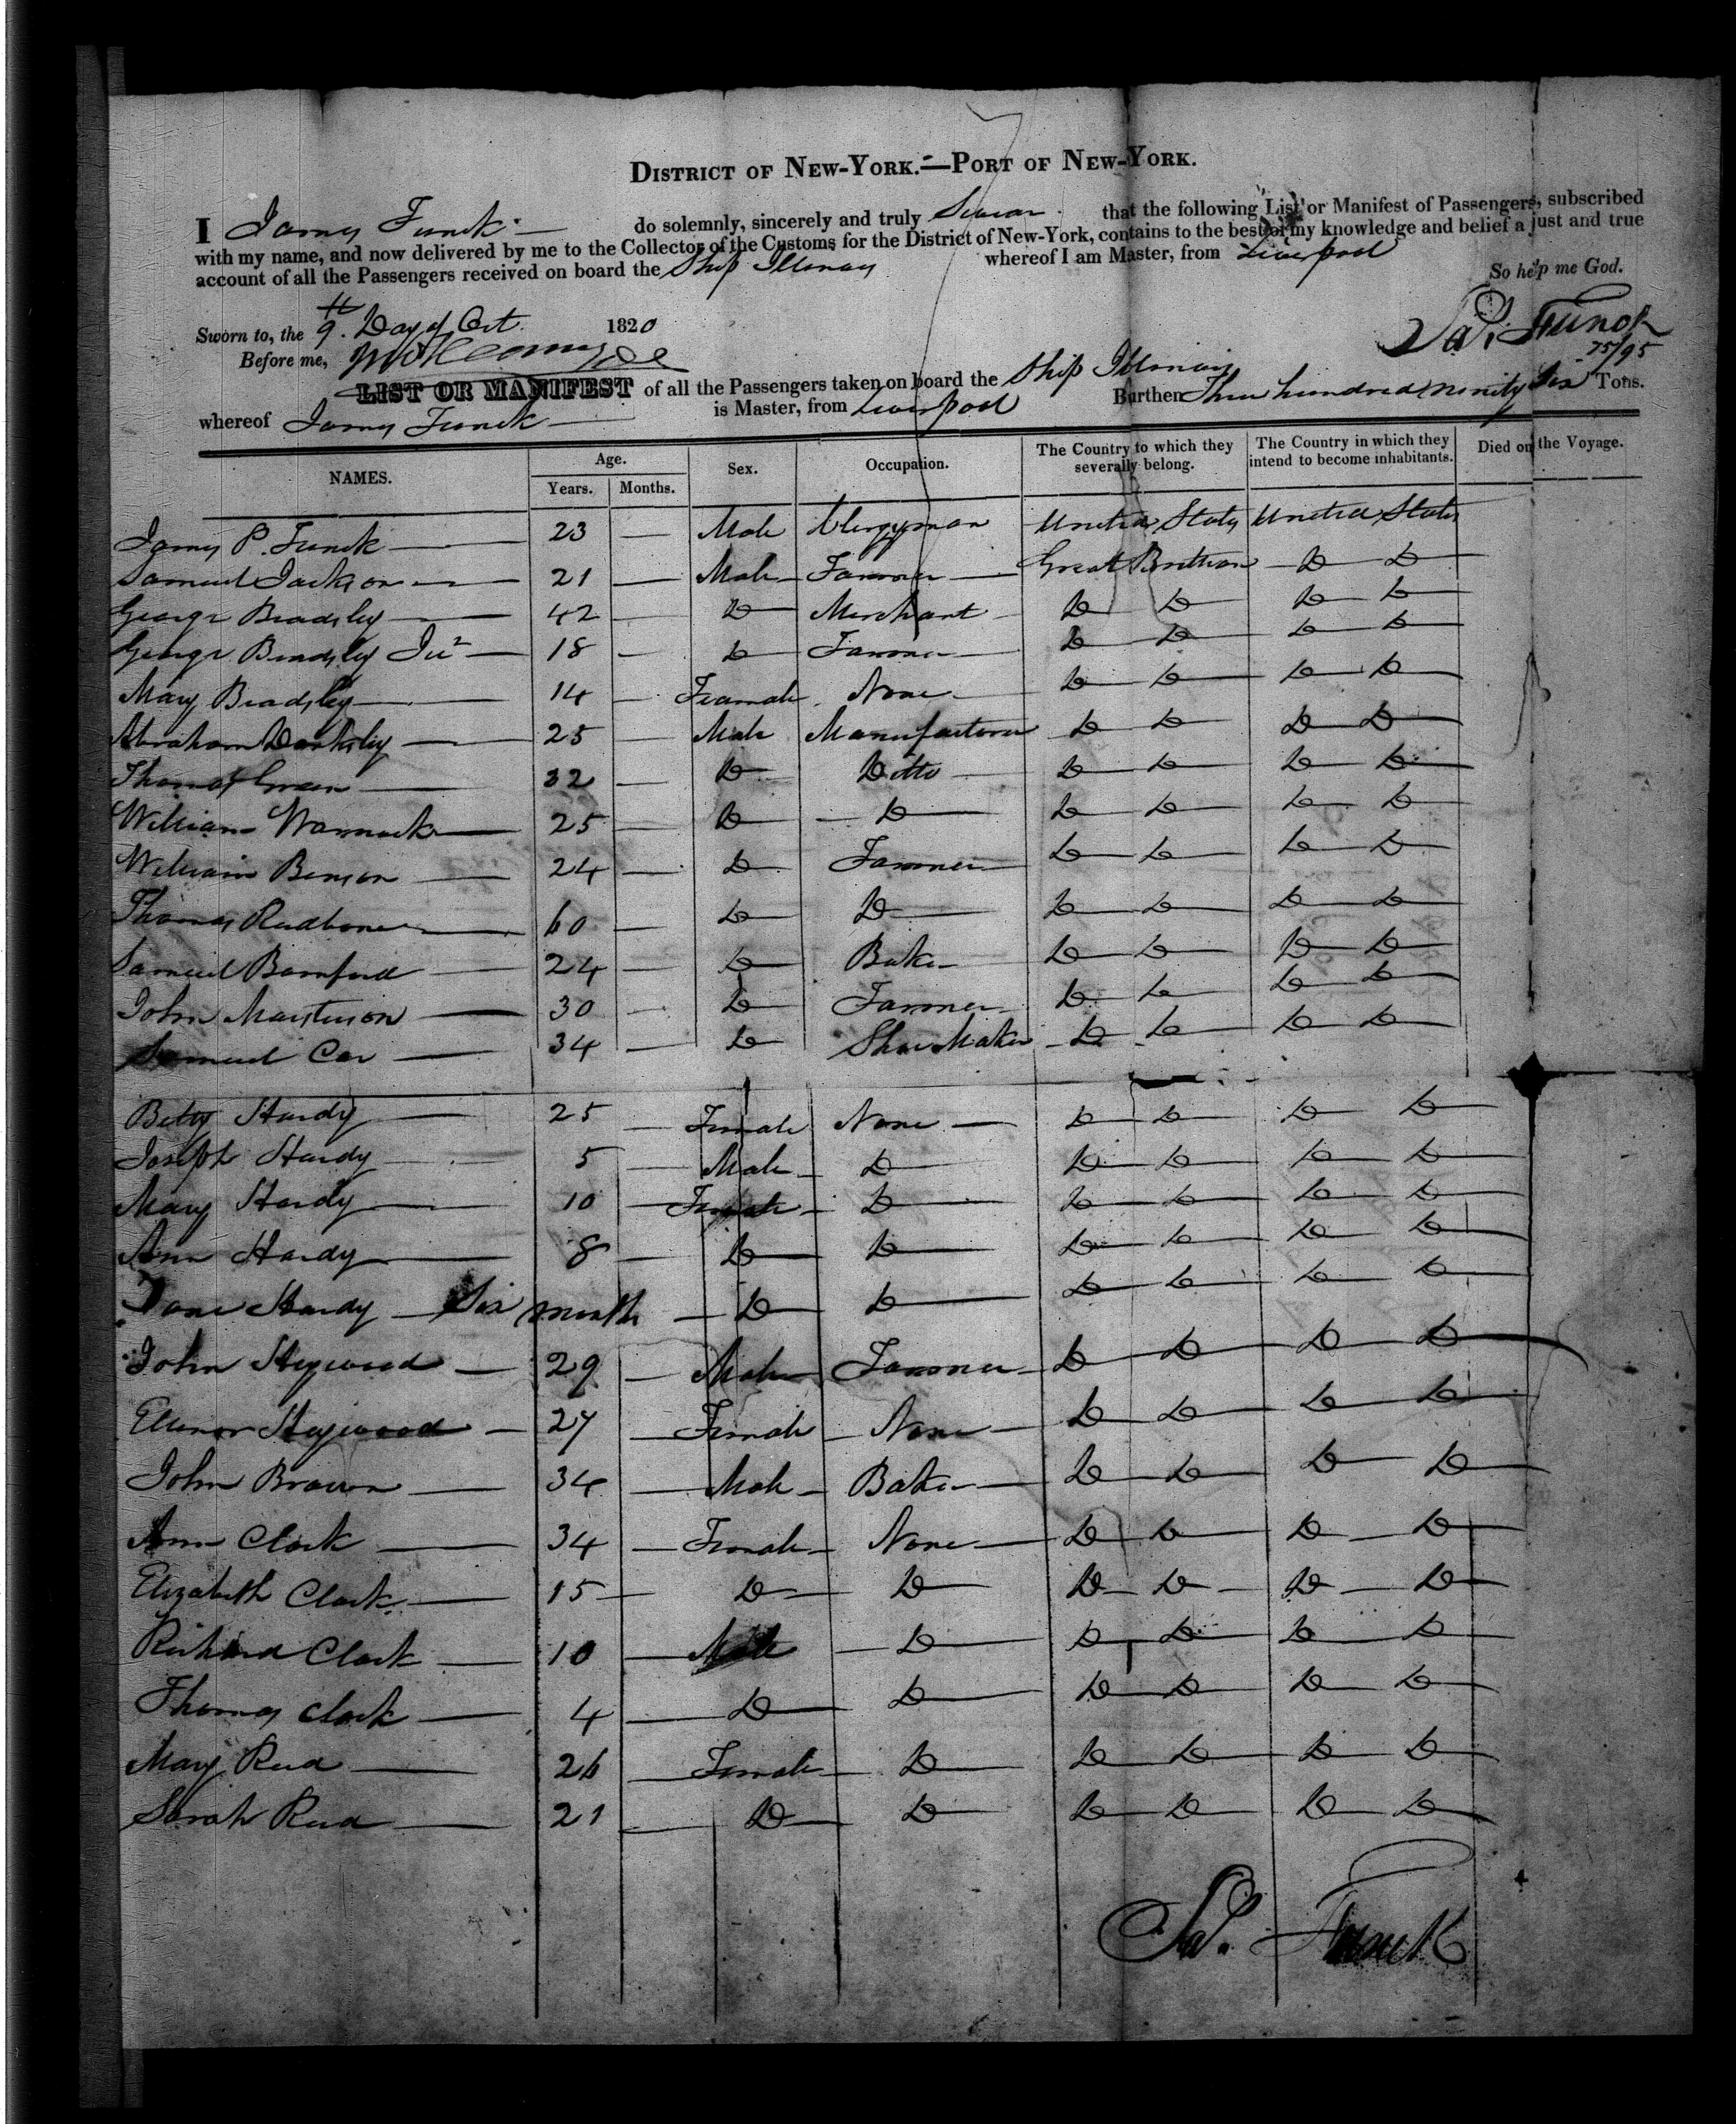 DISTRICT OF NEW-YORK.—PORT OF NEW-YORK.
I James Funck — do solemnly, sincerely and truly Swear that the following List or Manifest of Passengers, subscribed
with my name, and now delivered by me to the Collector of the Customs for the District of New-York, contains to the best of my knowledge and belief a just and true
account of all the Passengers received on board the Ship Illinois whereof I am Master, from Liverpool
So help me God.
Sworn to, the 9th Day of Oct. 1820
Jas. Funck
Before me,
75/95
LIST OR MANIFEST of all the Passengers taken on board the Ship Illinois Burthen Three hundred ninity Six Tons.
whereof James Funck — is Master, from Liverpool
NAMES. Age. Years. Months. Sex. Occupation. The Country to which they severally belong. The Country in which they intend to become inhabitants. Died on the Voyage.
James P. Funck — 23 — Male Clergyman United States United States
Samuel Jackson — 21 — Male Farmer — Great Brittan — Do Do
George Beadsley — 42 — Do Merchant — Do Do Do Do
George Beadsley Jur — 18 — Do Farmer — Do Do Do Do
Mary Beadsley — 14 — Feamale None — Do Do Do Do
Abraham — 25 — Male Manufacturer Do Do Do Do
Thomas Green — 32 — Do Ditto — Do Do Do Do
William — 25 — Do — Do — Do Do Do Do
William Benson — 24 — Do Farmer — Do Do Do Do
Thomas Redbone — 60 — Do Do — Do Do Do Do
Samuel Bamford — 24 — Do Baker Do Do Do Do
John Masterson — 30 — Do Farmer — Do Do Do Do
Samuel Car — 34 — Do Shoe Maker — Do Do Do Do
Betty Hardy — 25 — Female None — Do Do Do Do
Joseph Hardy — 5 — Male — Do — Do Do Do Do
Mary Hardy — 10 — Female — Do — Do Do Do Do
Ann Hardy — 8 — Do Do — Do Do Do Do
Jane Hardy — Six month — Do Do — Do Do Do Do
John Heywood — 29 — Male Farmer — Do Do Do Do
Ellenor Heywood — 27 — Female — None — Do Do Do Do
John Brown — 34 — Male — Baker — Do Do Do Do
Ann Clark — 34 — Female — None — Do Do Do Do
Elizabeth Clark — 15 — Do Do — Do Do Do Do
Richard Clark — 10 — Male — Do — Do Do Do Do
Thomas Clark — 4 — Do Do — Do Do Do Do
Mary Reed — 26 — Female — Do — Do Do Do Do
Sarah Reed — 21 — Do Do — Do Do Do Do
Jas. Funck